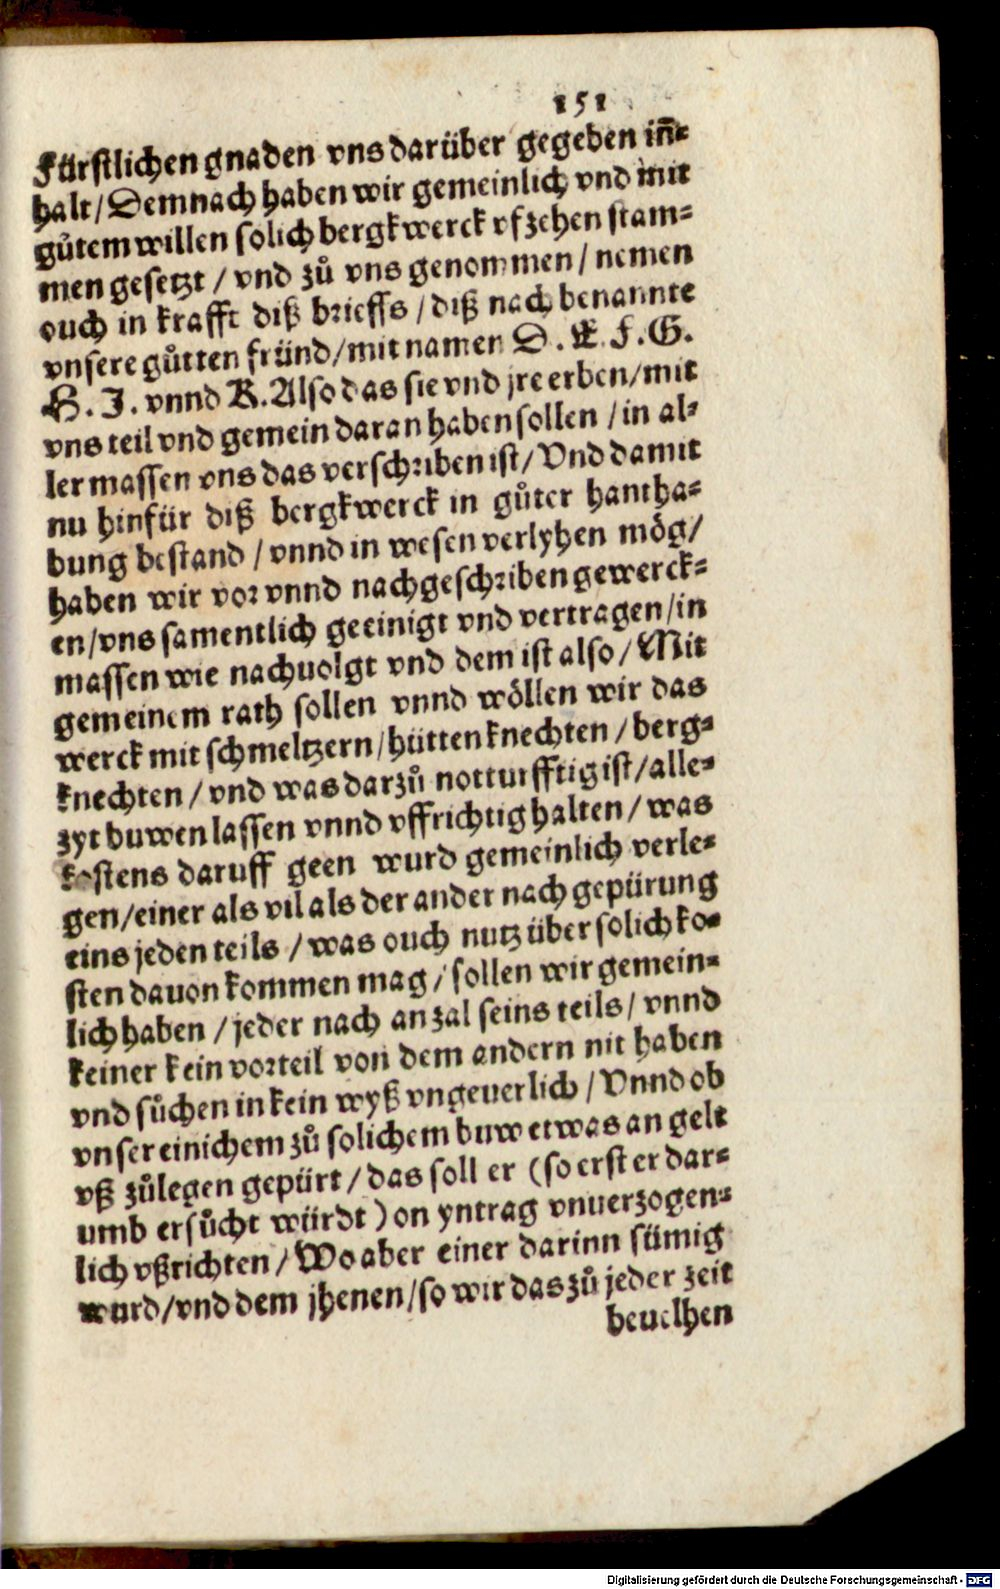 151
Fürstlichen gnaden vns darüber gegeben inn̄⸗
halt/Demnach haben wir gemeinlich vnd mit
gůtem willen solich bergkwerck vf zehen stam⸗
men gesetzt / vnd zů vns genommen / nemen
ouch in krafft diß brieffs / diß nach benannte
vnsere gůtten fründ/mit namen D. E. F. G.
H. J. vnnd K. Also das sie vnd jre erben/mit
vns teil vnd gemein daran haben sollen /in al⸗
ler massen vns das verschriben ist/ Vnd damit
nu hinfür diß bergkwerck in gůter hantha⸗
bung bestand / vnnd in wesen verlyhen mög/
haben wir vor vnnd nachgeschriben gewerck⸗
en/vns samentlich geeinigt vnd vertragen/in
massen wie nachuolgt vnd dem ist also / Mit
gemeinem rath sollen vnnd wöllen wir das
werck mit schmeltzern/hüttenknechten / berg⸗
knechten / vnd was darzů notturfftig ist/alle⸗
zyt buwen lassen vnnd vffrichtig halten / was
kostens daruff geen wurd gemeinlich verle⸗
gen/einer als vil als der ander nach gepürung
eins jeden teils / was ouch nutz über solich ko⸗
sten dauon kommen mag / sollen wir gemein⸗
lich haben / jeder nach anzal seins teils/ vnnd
keiner kein vorteil von dem andern nit haben
vnd sůchen in kein wyß vngeuerlich / Vnnd ob
vnser einichem zů solichem buw etwas an gelt
vß zůlegen gepürt / das soll er (so erst er dar⸗
umb ersůcht würdt ) on yntrag vnuerzogen⸗
lich vßrichten / Wo aber einer darinn sümig
wurd/vnd dem jhenen/so wir das zů jeder zeit
beuelhen
Digitalisierung gefördert durch die Deutsche Forschungsgemeinschaft - DFG